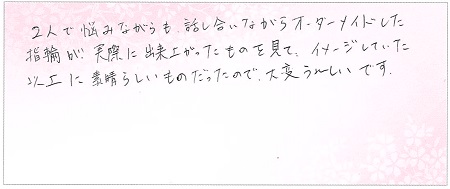 2人で悩みながらも、話し合いながらオーダーメイドした
指輪が、実際に出来上がったものを見て、イメージしていた
以上に素晴らしいものだったので、大変うれしいです。